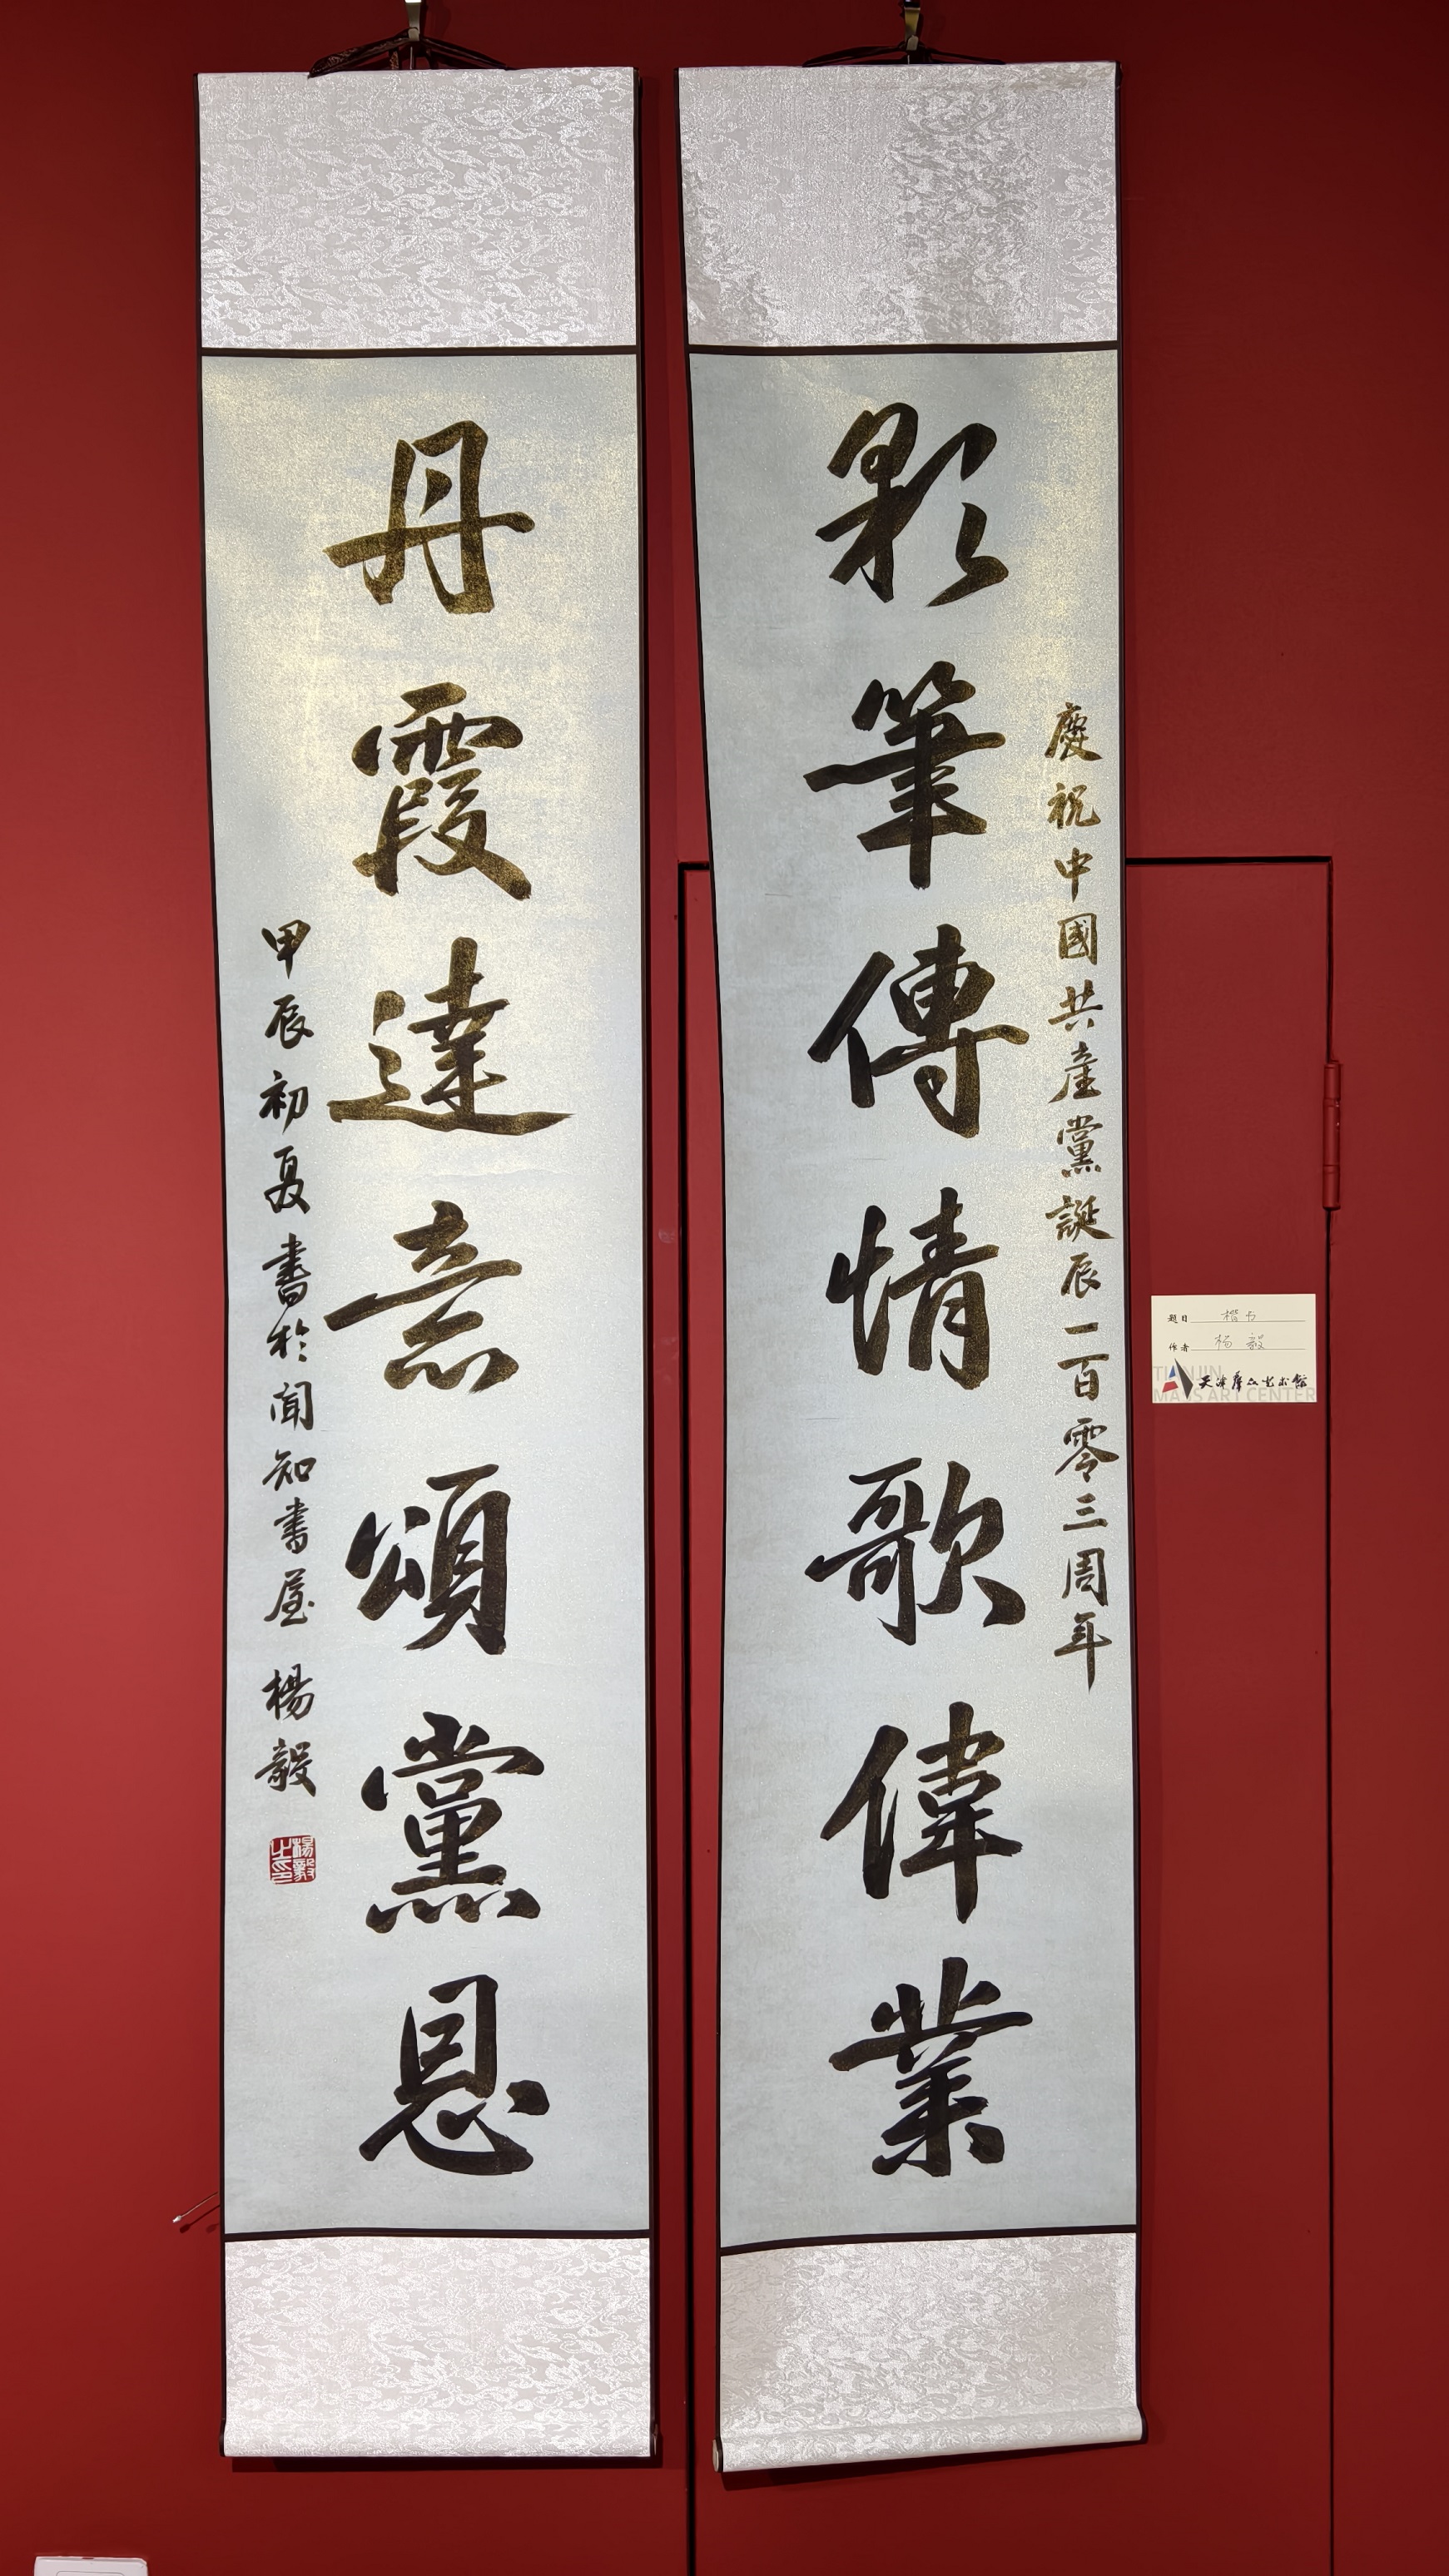 慶祝中國共產黨誕辰一百零三周年
彩筆傳情歌偉業
丹霞達意頌黨恩
甲辰初夏書於聞知書屋 楊毅
楊毅之印
題目 楷书
作者 杨毅
天津群众艺术馆
TIANJIN
MASS ART CENTER